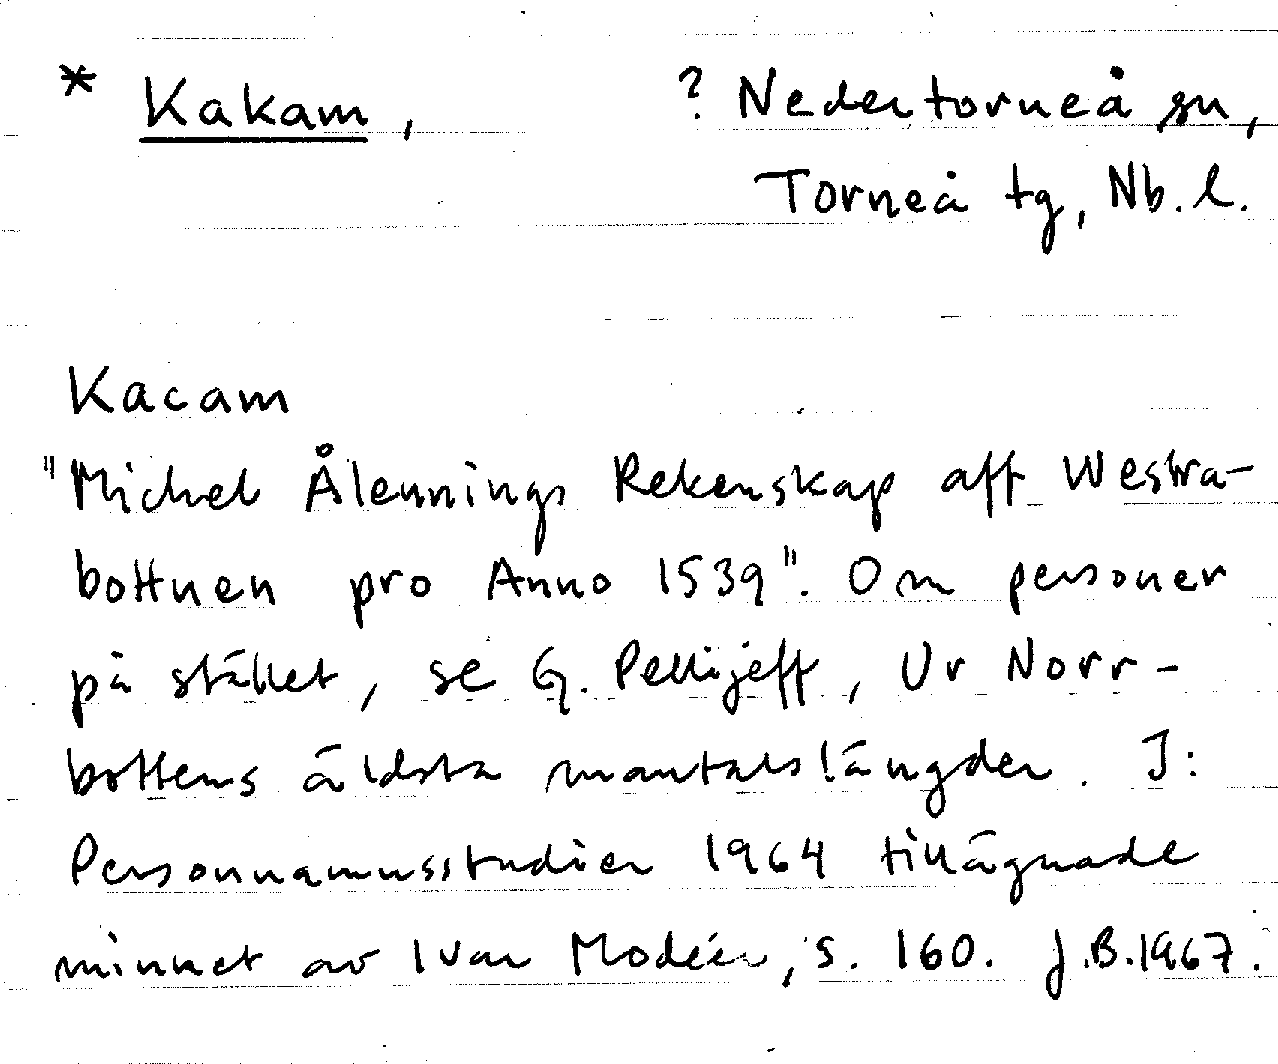 * Kakam, ? Nedertorneå sn,
Torneå tg, Nb. l.
Kacam
"Michel Ålennings Rekenskap aff Westra-
bottnen pro Anno 1539". Om personer
på stället, se G. Pellijeff, Ur Norr-
bottens äldsta mantalslängder. I:
Personnamnsstudier 1964 tillägnade
minnet av Ivar Modéer, s. 160. J.B.1967.